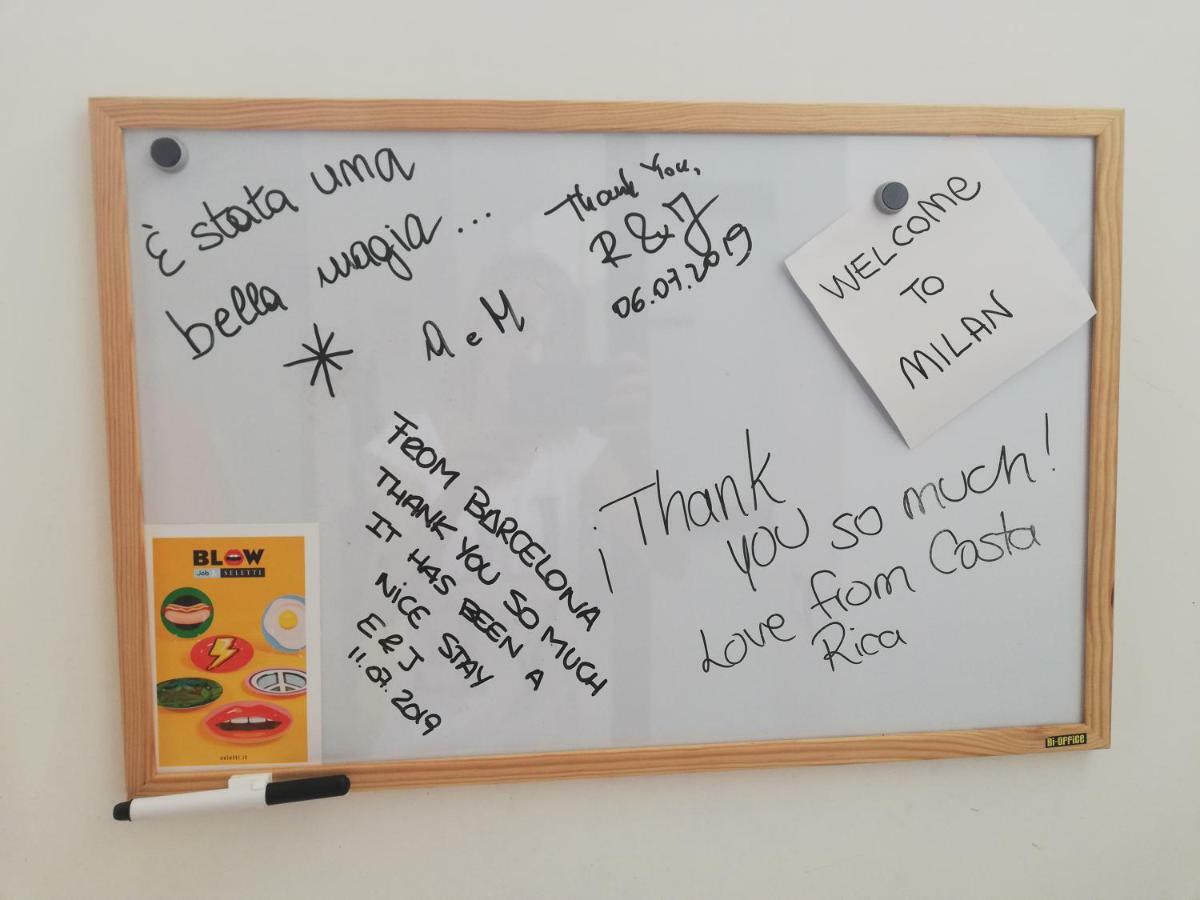 È stata una
bella magia...
M e M
Thank You,
R & J
06.07.2019
WELCOME
TO
MILAN
FROM BARCELONA
THANK YOU SO MUCH
IT HAS BEEN A
NICE STAY
E & J
11.07.2019
¡Thank
you so much!
Love from Costa
Rica
BLOW
Job & SELETTI
seletti.it
Bi-OFFICE